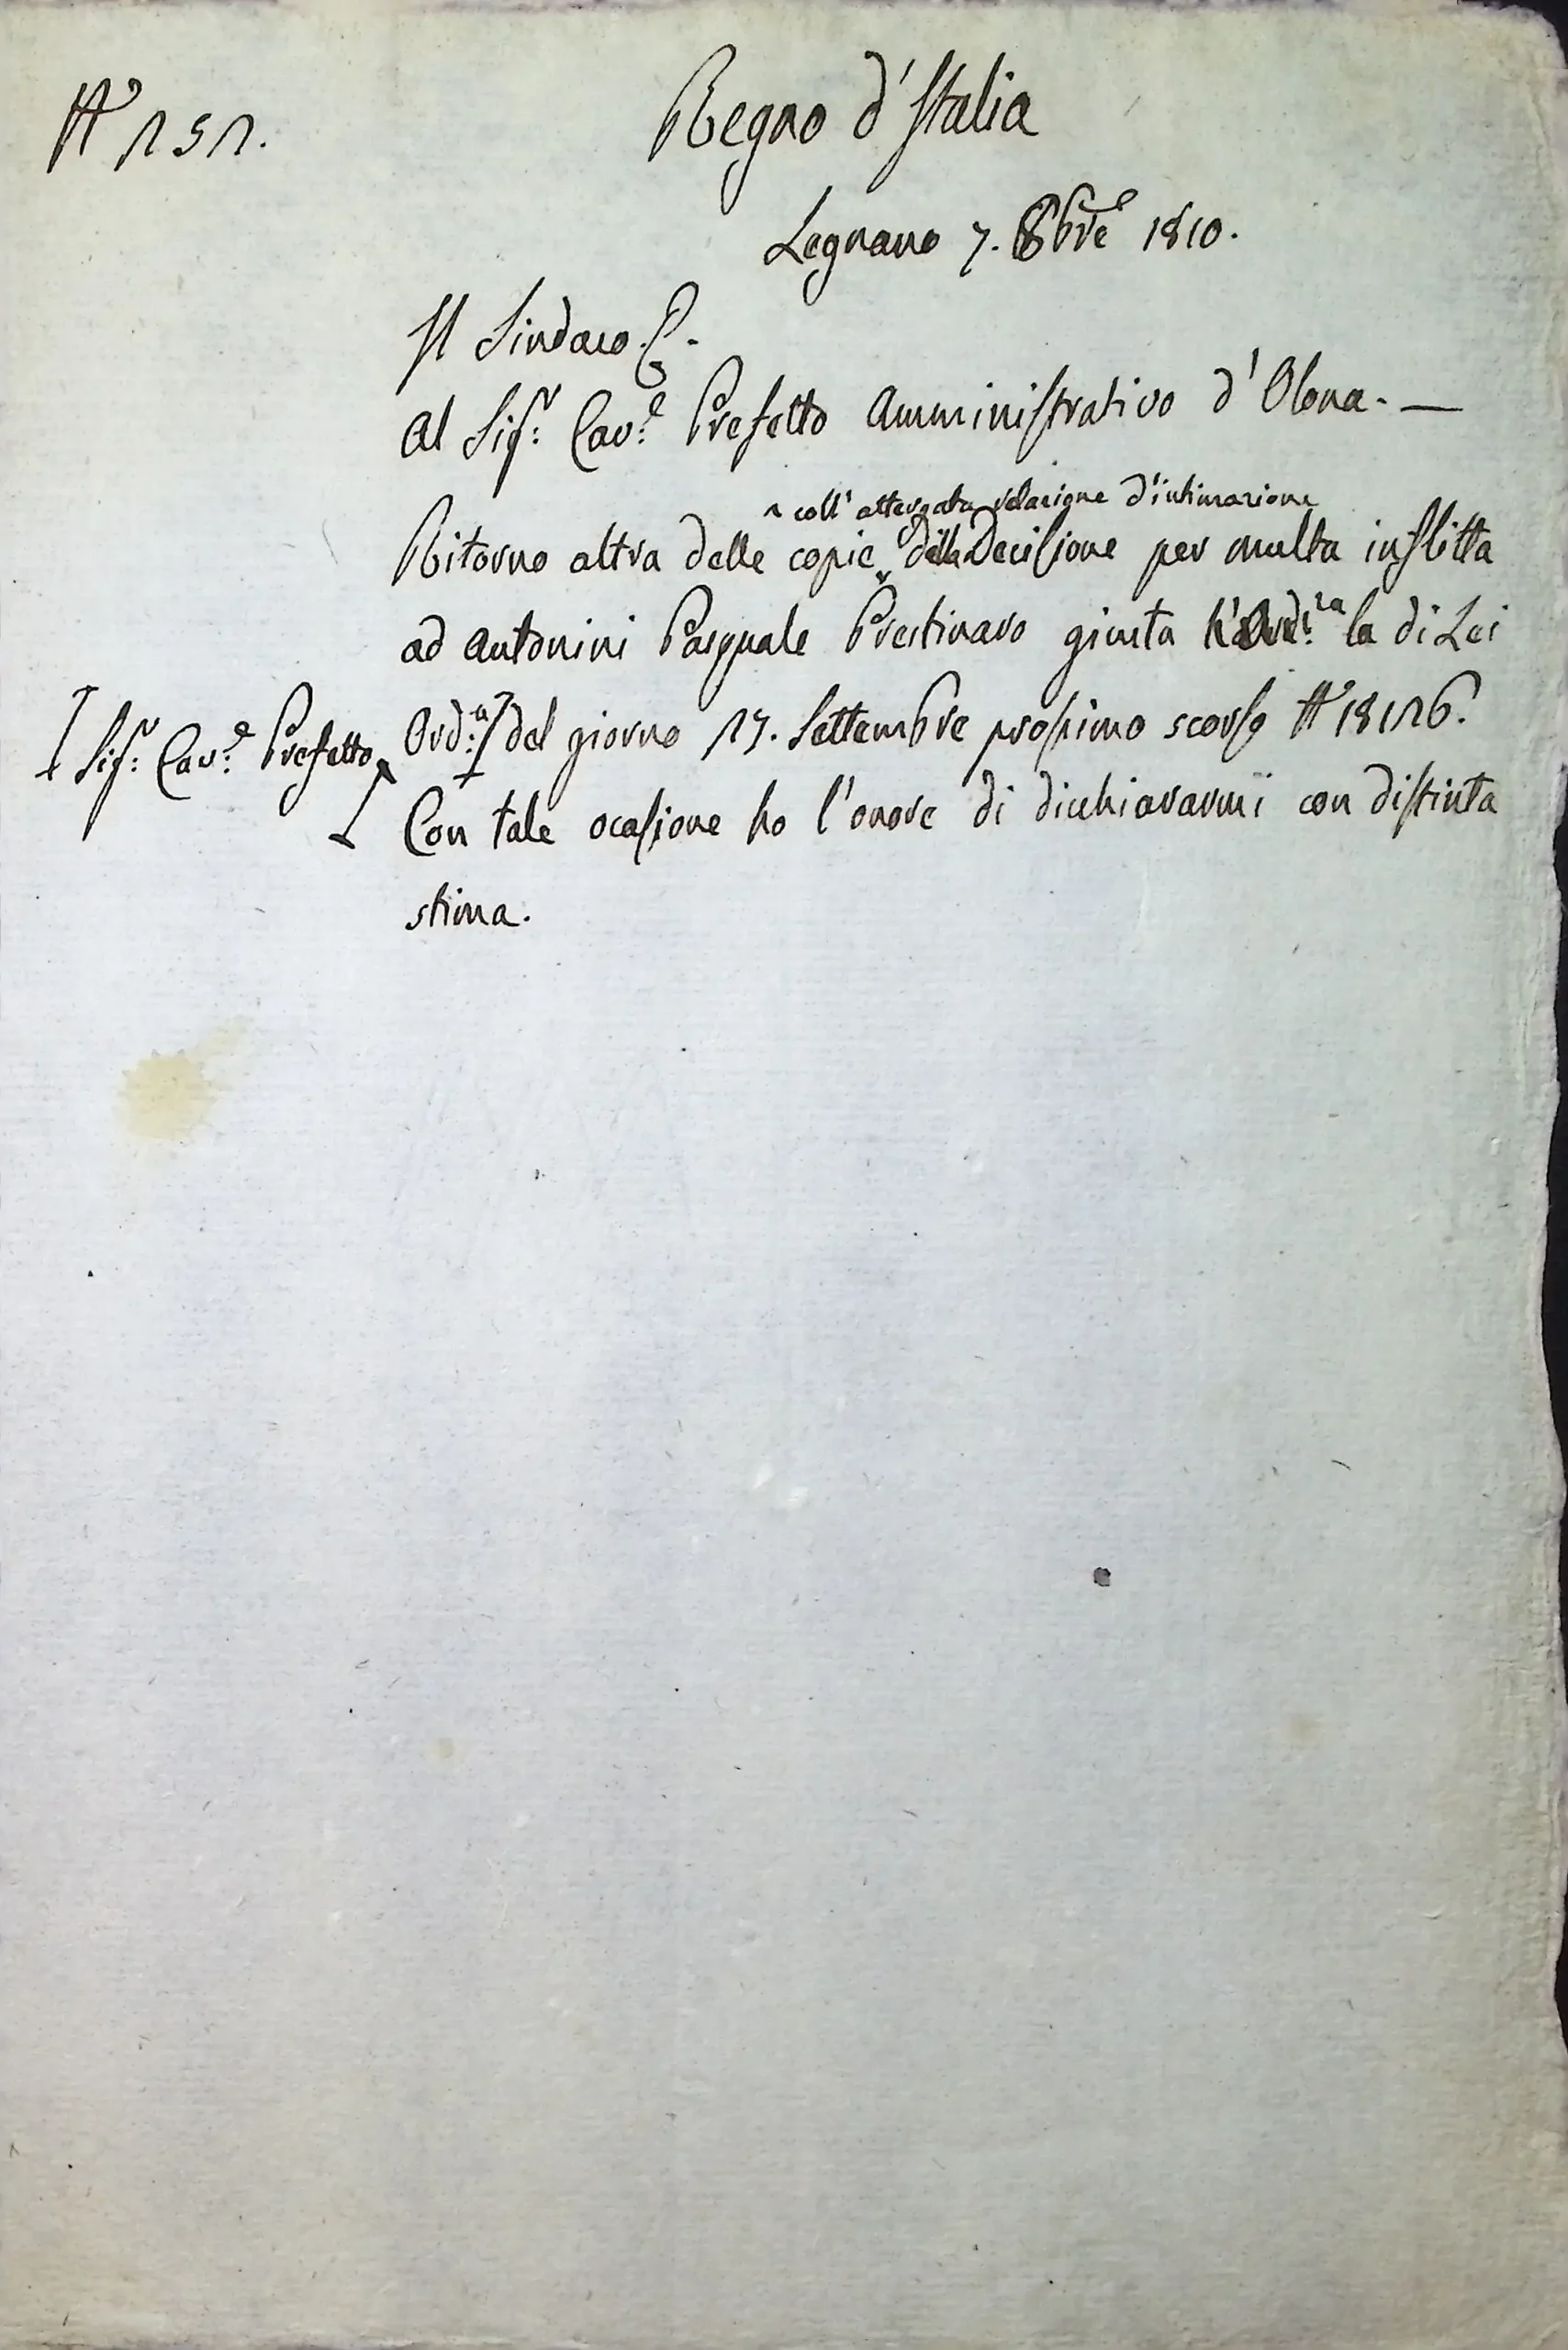 N° 151.
Regno d'Italia
Legnano 7. 8bre 1810.
Il Sindaco
Al Sigr: Cav:e Prefetto Amministrativo d'Olona. —
coll'attergata relazione d'intimazione
Ritorno altra delle copie della Decisione per multa inflitta
ad Antonini Pasquale Prestinaro giusta la di Lei
Ord:a del giorno 17. Settembre prossimo scorso N° 18126.
Sigr: Cav:e Prefetto
Con tale ocasione ho l'onore di dicchiararmi con distinta
stima.